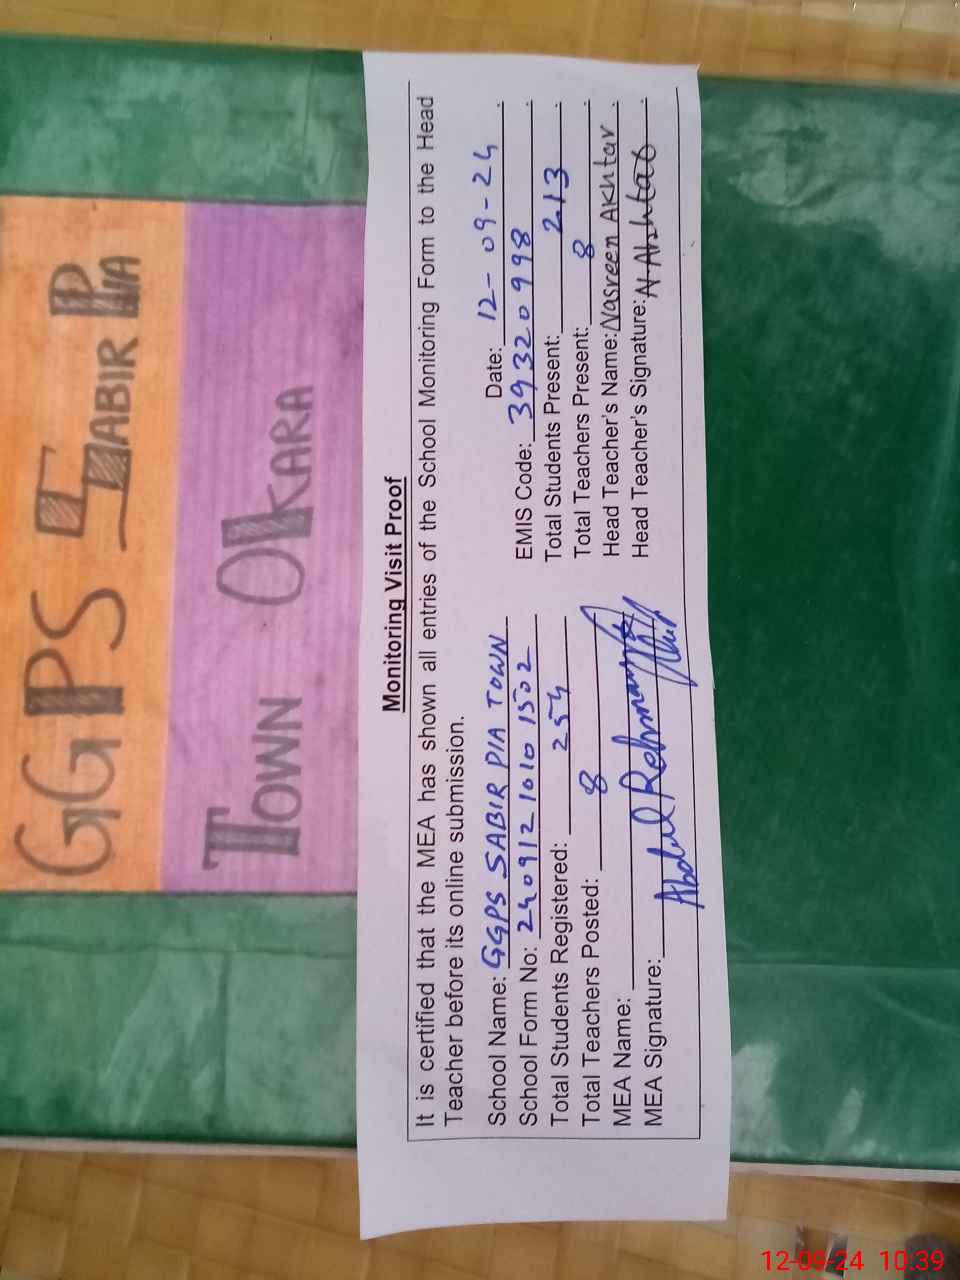 GGPS SABIR PIA
TOWN OKARA
Monitoring Visit Proof
It is certified that the MEA has shown all entries of the School Monitoring Form to the Head
Teacher before its online submission.
School Name: GGPS SABIR PIA TOWN Date: 12-09-24
School Form No: 2409121010 1502 EMIS Code: 39320998
Total Students Registered: 254 Total Students Present: 213
Total Teachers Posted: 8 Total Teachers Present: 8
MEA Name: Abdul Rehman Head Teacher's Name: Nasreen Akhtar
MEA Signature: Head Teacher's Signature: N.Akhtar
12-09-24 10:39